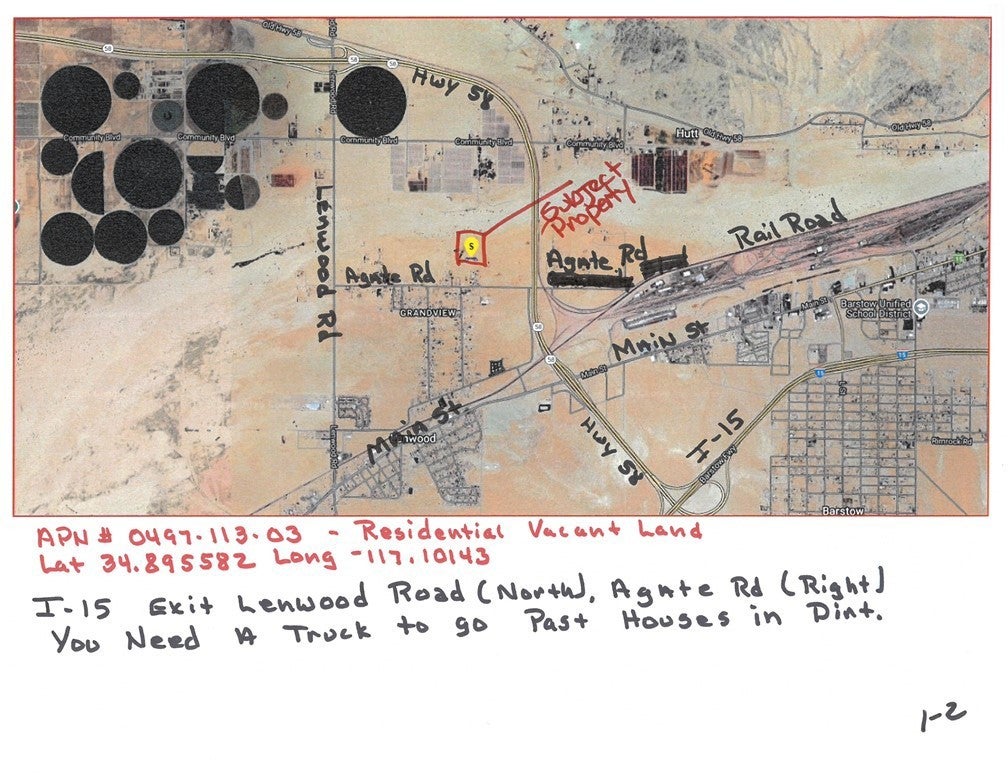 Old Hwy 58
58
58
58
HWY 58
Community Blvd
Community Blvd
Community Blvd
Community Blvd
Community Blvd
Hutt
Old Hwy 58
Old Hwy 58
Subject
Property
S
Lenwood Rd
Rail Road
Agate Rd
Agate Rd
GRANDVIEW
Main St
Barstow Unified
School District
58
58
MAIN St
Main St
15
15
Main St
Lenwood Rd
HWY 58
I-15
Barstow Fwy
Rimrock Rd
Barstow
APN # 0497-113-03 - Residential Vacant Land
Lat 34.895582 Long -117.10143
I-15 Exit Lenwood Road (North), Agate Rd (Right)
You Need A Truck to go Past Houses in Dirt.
1-2